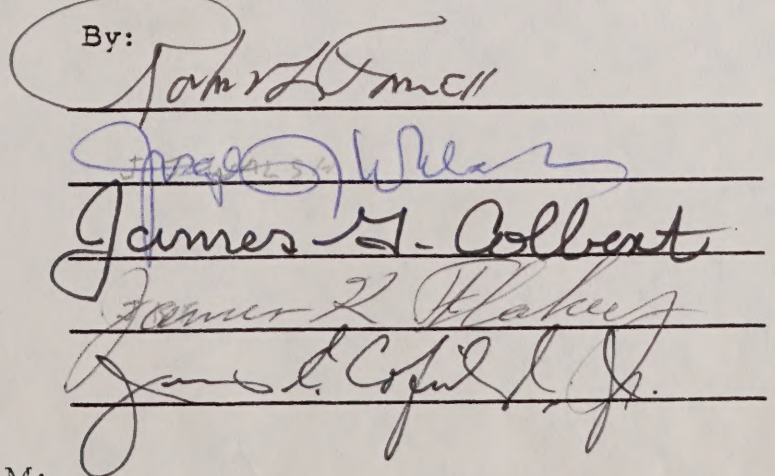 By:
Joseph J. Walsh
James G. Colbert
James K. Flaherty
James E. Cofield, Jr.
M: